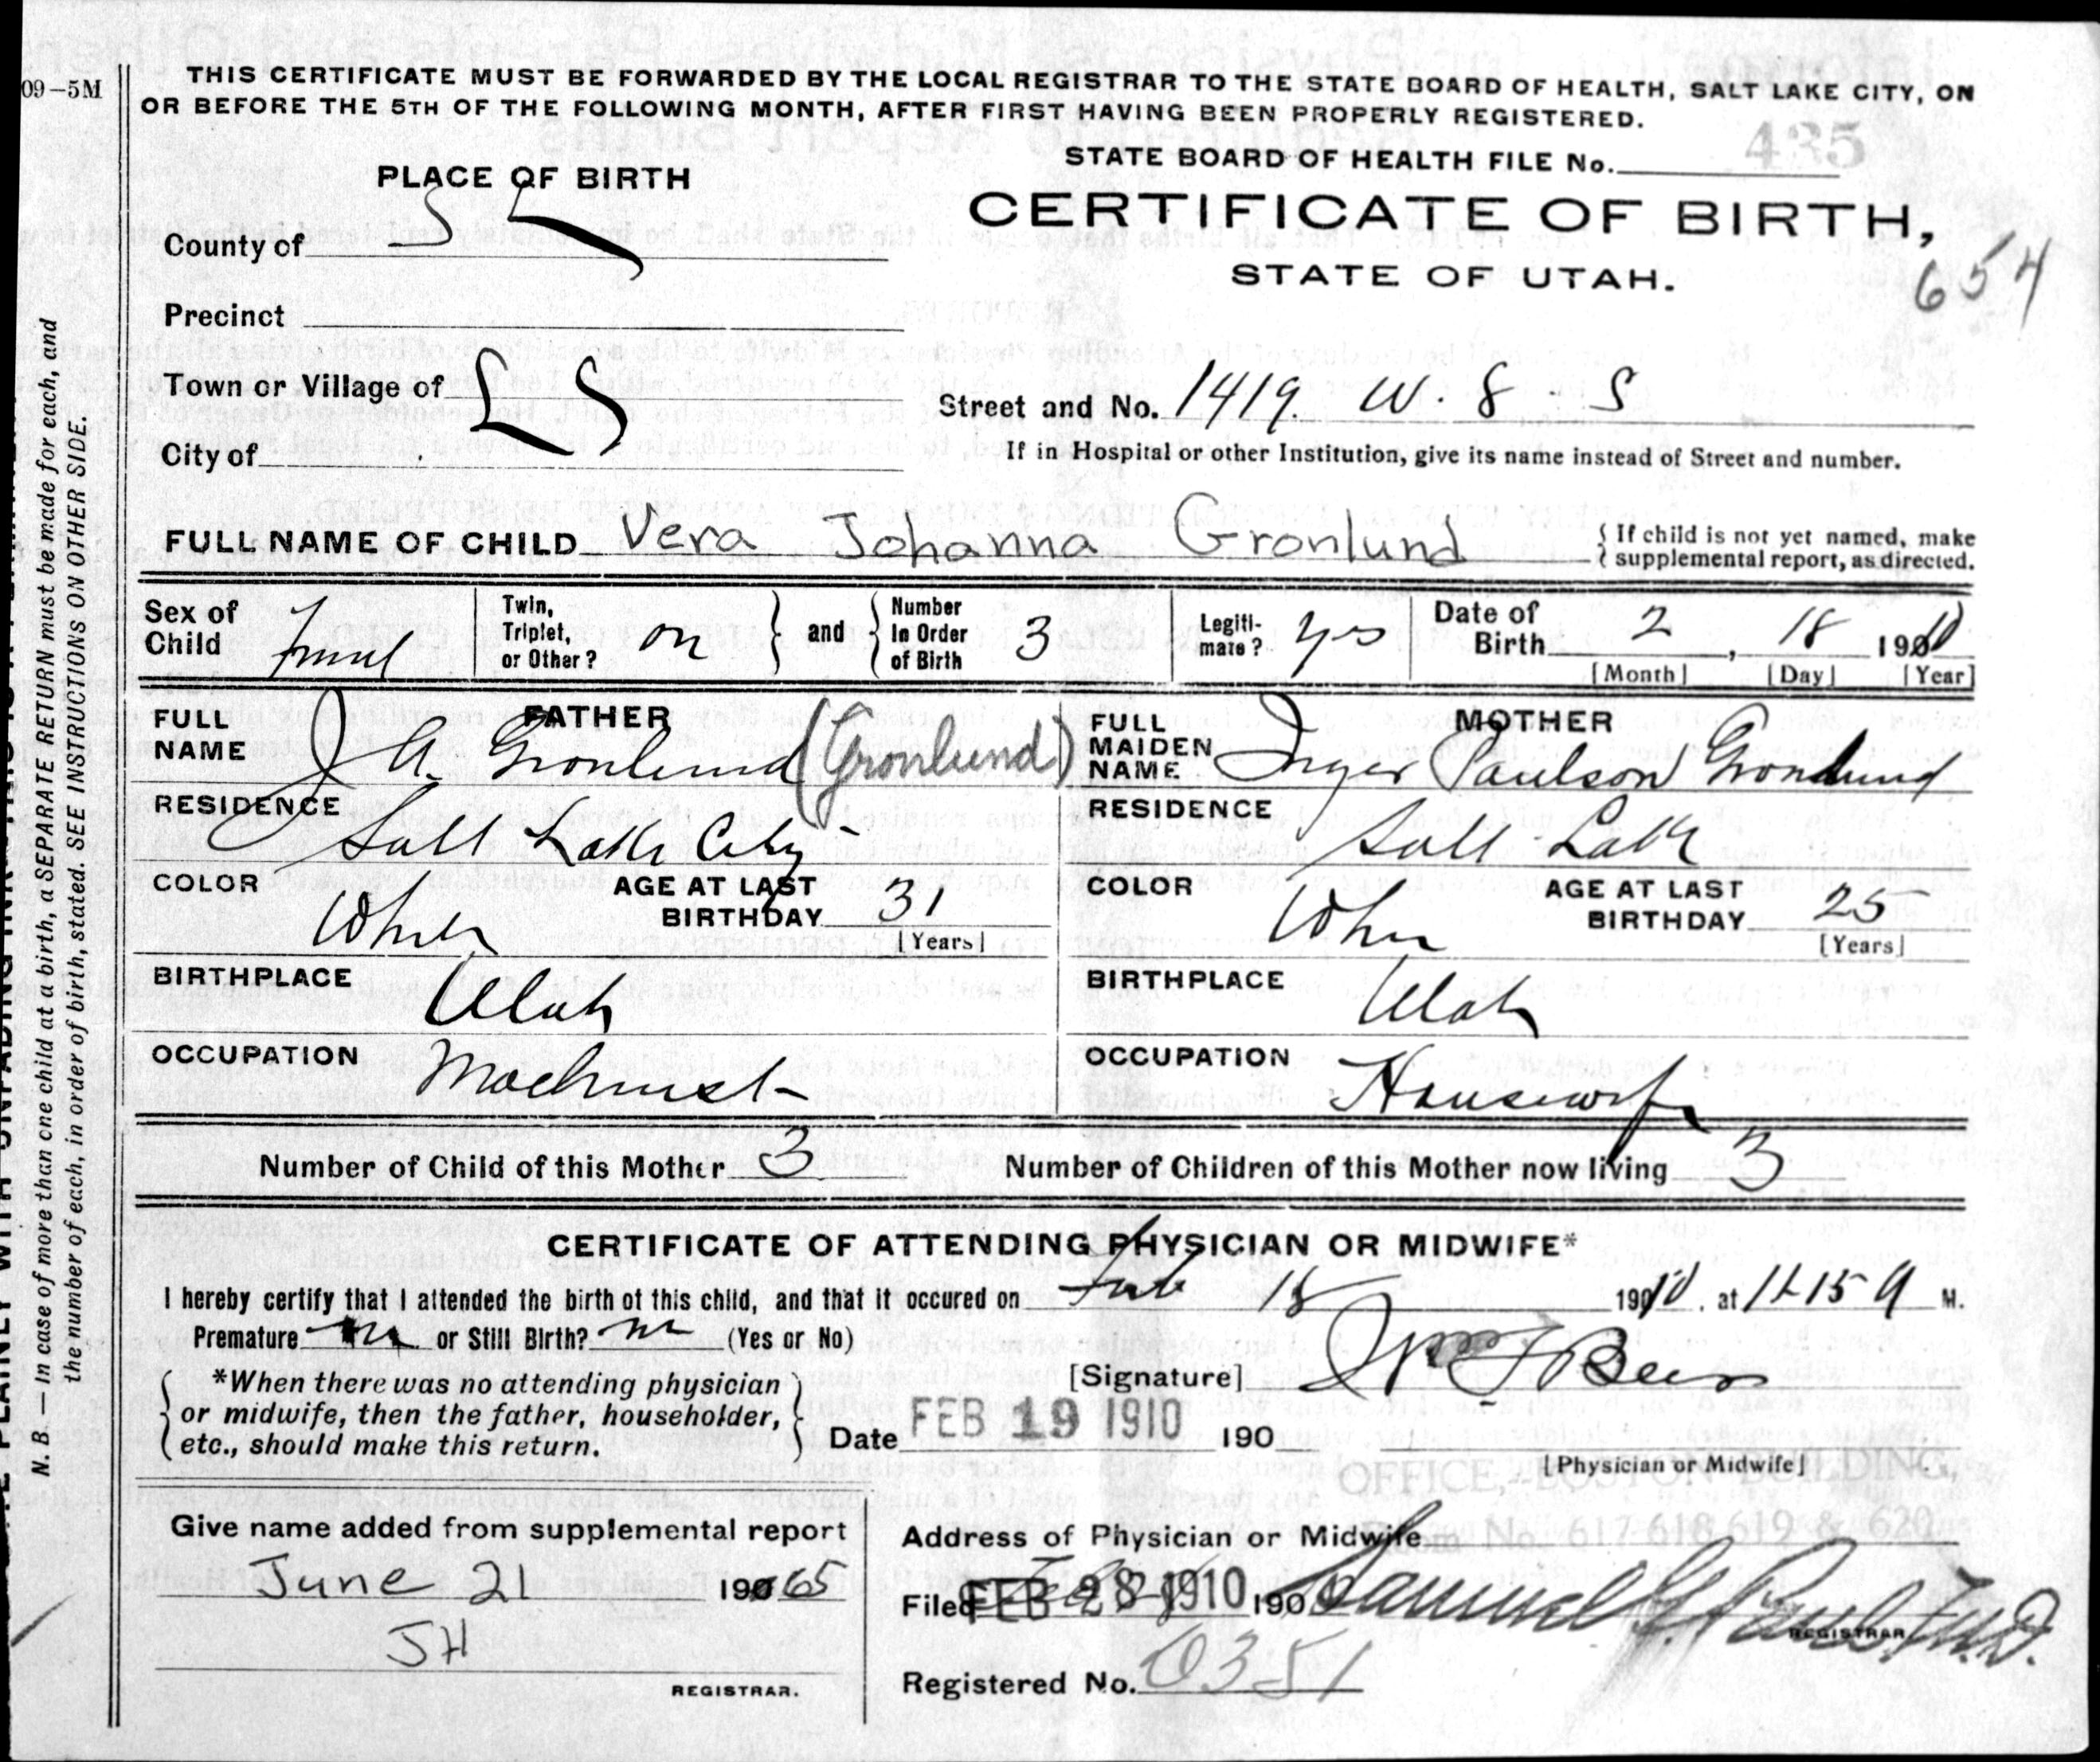 09-5M
THIS CERTIFICATE MUST BE FORWARDED BY THE LOCAL REGISTRAR TO THE STATE BOARD OF HEALTH, SALT LAKE CITY, ON
OR BEFORE THE 5TH OF THE FOLLOWING MONTH, AFTER FIRST HAVING BEEN PROPERLY REGISTERED.
STATE BOARD OF HEALTH FILE No. 435
PLACE OF BIRTH
CERTIFICATE OF BIRTH,
STATE OF UTAH.
654
County of S L
Precinct
Town or Village of
City of
Street and No. 1419. W. 8 S
If in Hospital or other Institution, give its name instead of Street and number.
FULL NAME OF CHILD Vera Johanna Gronlund
{ If child is not yet named, make
{ supplemental report, as directed.
Sex of Child
Twin, Triplet, or Other? on } and { Number In Order of Birth 3
Legiti-mate? yes
Date of Birth 2, 18 1910
[Month] [Day] [Year]
FATHER
FULL NAME J A. Gronlund (Gronlund)
RESIDENCE Salt Lake City
COLOR
AGE AT LAST BIRTHDAY 31
[Years]
BIRTHPLACE Utah
OCCUPATION Machinist
MOTHER
FULL MAIDEN NAME Inger Paulson Gronlund
RESIDENCE Salt Lake
COLOR
AGE AT LAST BIRTHDAY 25
[Years]
BIRTHPLACE Utah
OCCUPATION Housewife
Number of Child of this Mother 3
Number of Children of this Mother now living 3
CERTIFICATE OF ATTENDING PHYSICIAN OR MIDWIFE*
I hereby certify that I attended the birth of this child, and that it occured on Feb 18 1910. at M.
Premature no or Still Birth? no (Yes or No)
[Signature]
*When there was no attending physician
or midwife, then the father, householder,
etc., should make this return.
Date FEB 19 1910 190
[Physician or Midwife]
OFFICE, BOSTON BUILDING,
Address of Physician or Midwife Room No. 617 618 619 & 620
Filed FEB 28 1910 190
REGISTRAR
Registered No. 0351
Give name added from supplemental report
June 21 1965
JH
REGISTRAR.
N. B. — In case of more than one child at a birth, a SEPARATE RETURN must be made for each, and
the number of each, in order of birth, stated. SEE INSTRUCTIONS ON OTHER SIDE.